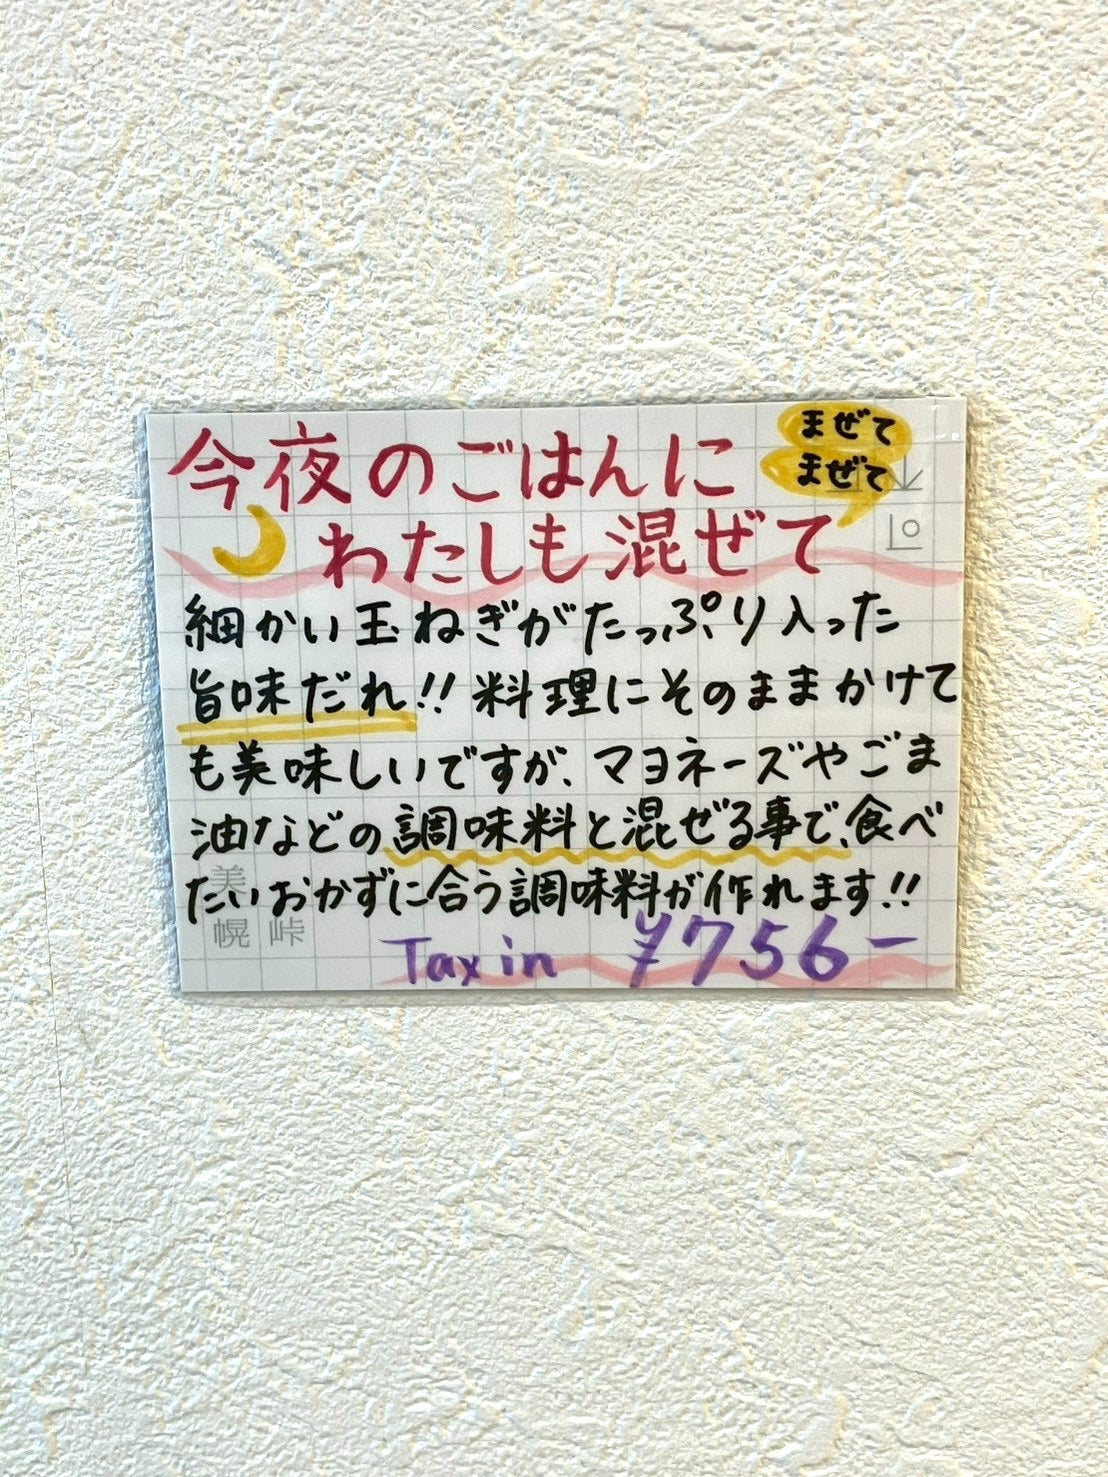 今夜のごはんに
わたしも混ぜて
まぜて
まぜて
細かい玉ねぎがたっぷり入った
旨味だれ!! 料理にそのままかけて
も美味しいですが、マヨネーズやごま
油などの調味料と混ぜる事で、食べ
たいおかずに合う調味料が作れます!!
美
幌 峠
Tax in ¥756-